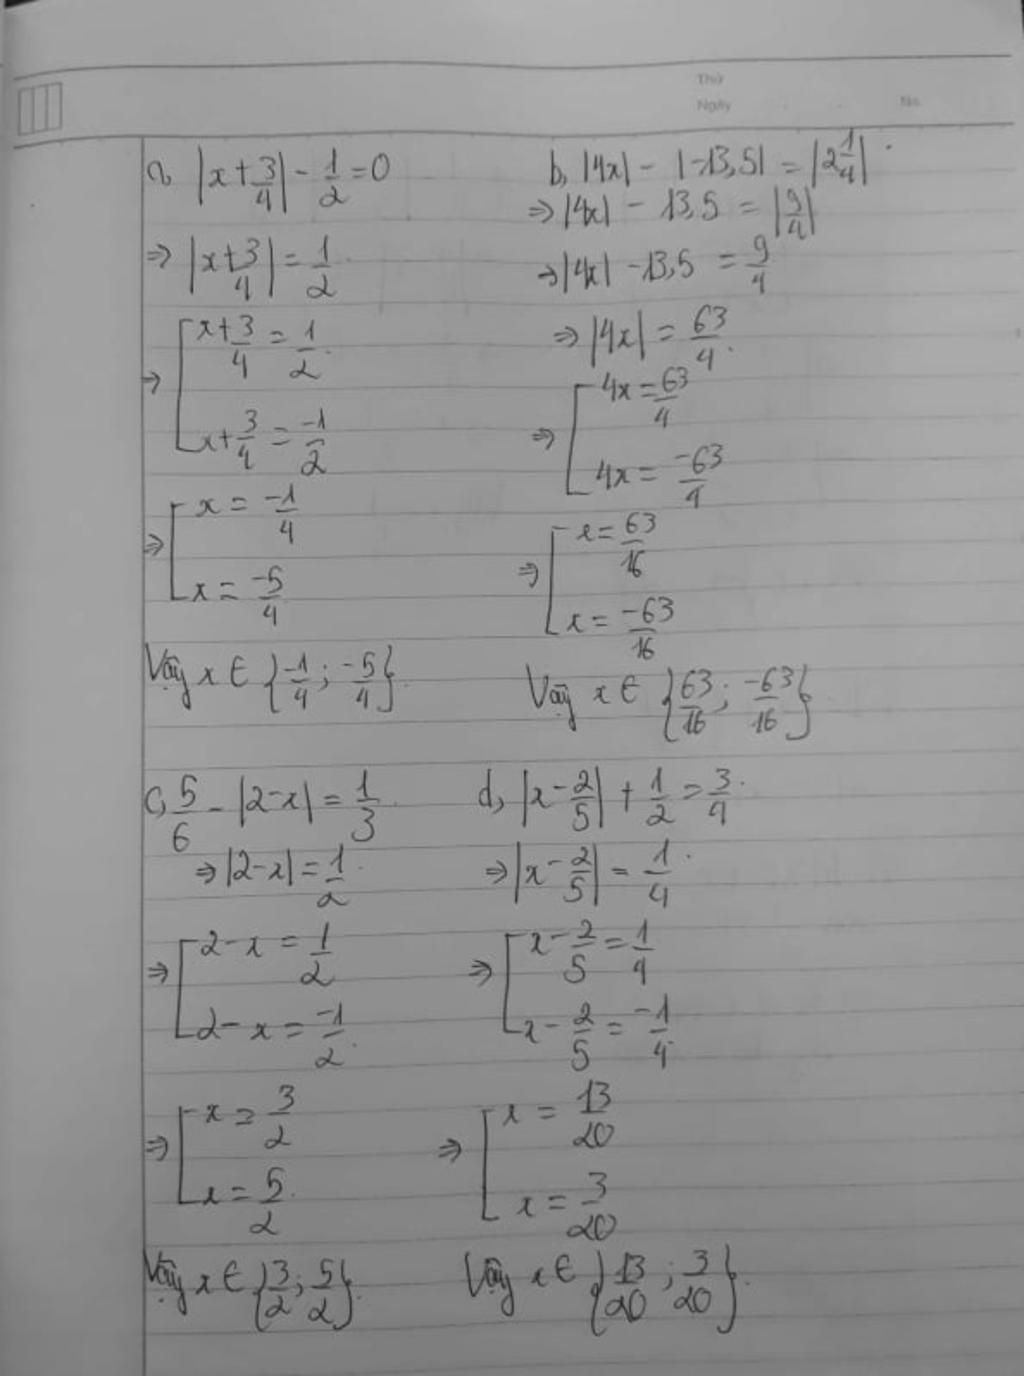 Thứ
Ngày No.
a, |x+3/4| - 1/2 = 0
⇒ |x+3/4| = 1/2
⇒ [x+3/4 = 1/2
x+3/4 = -1/2
⇒ [x = -1/4
x = -5/4
Vậy x ∈ {-1/4; -5/4}.
b, |4x| - |-13,5| = |2 1/4|
⇒ |4x| - 13,5 = |9/4|
⇒ |4x| - 13,5 = 9/4
⇒ |4x| = 63/4.
⇒ [4x = 63/4
4x = -63/4
⇒ [x = 63/16
x = -63/16
Vậy x ∈ {63/16; -63/16}
c, 5/6 - |2-x| = 1/3
⇒ |2-x| = 1/2
⇒ [2-x = 1/2
2-x = -1/2
⇒ [x = 3/2
x = 5/2
Vậy x ∈ {3/2; 5/2}.
d, |x - 2/5| + 1/2 = 3/4
⇒ |x - 2/5| = 1/4
⇒ [x - 2/5 = 1/4
x - 2/5 = -1/4
⇒ [x = 13/20
x = 3/20
Vậy x ∈ {13/20; 3/20}.